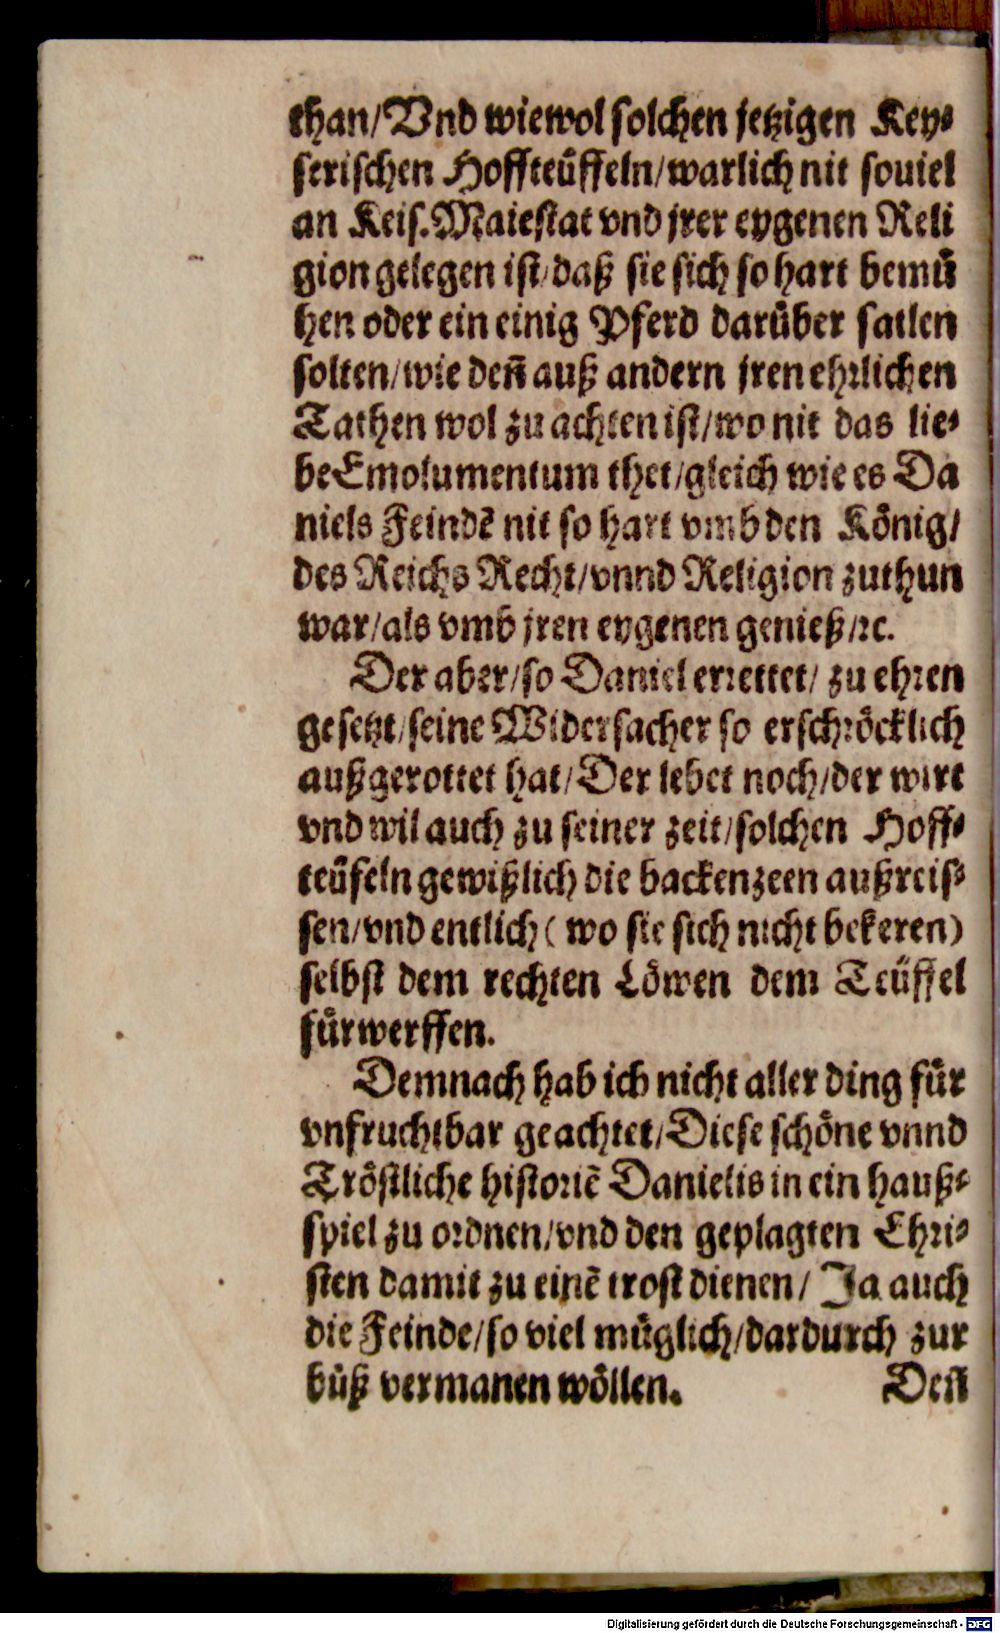 than/Vnd wiewol solchen jetzigen Key⸗
serischen Hoffteüffeln/warlich nit souiel
an Keis. Maiestat vnd jrer eygenen Reli
gion gelegen ist/daß sie sich so hart bemuͤ
hen oder ein einig Pferd daruͤber satlen
solten/wie deñ auß andern jren ehrlichen
Tathen wol zu achten ist/wo nit das lie⸗
be Emolumentum thet/gleich wie es Da
niels Feindē nit so hart vmb den Koͤnig/
des Reichs Recht/vnnd Religion zuthun
war/als vmb jren eygenen genieß/ꝛc.
Der aber/so Daniel errettet/ zu ehren
gesetzt/seine Widersacher so erschroͤcklich
außgerottet hat/Der lebet noch/der wirt
vnd wil auch zu seiner zeit/solchen Hoff⸗
teüfeln gewißlich die backenzeen außreis⸗
sen/vnd entlich ( wo sie sich nicht bekeren)
selbst dem rechten Loͤwen dem Teüffel
fuͤrwerffen.
Demnach hab ich nicht aller ding fuͤr
vnfruchtbar geachtet/Diese schoͤne vnnd
Troͤstliche historiē Danielis in ein hauß⸗
spiel zu ordnen/vnd den geplagten Chri⸗
sten damit zu einē trost dienen/ Ja auch
die Feinde/so viel muͤglich/dardurch zur
buͤß vermanen woͤllen. Deñ
Digitalisierung gefördert durch die Deutsche Forschungsgemeinschaft - DFG